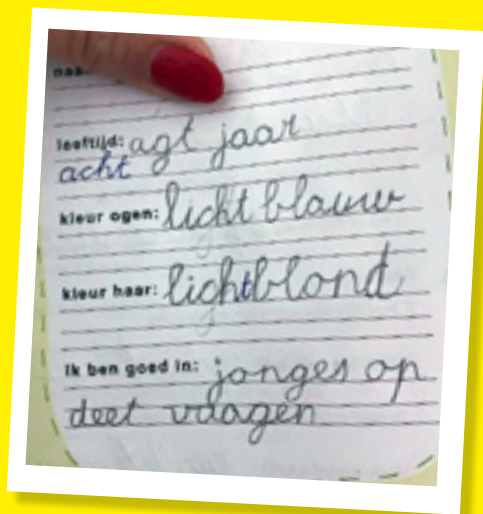 leeftijd: agt jaar
acht
kleur ogen: licht blauw
kleur haar: lichtblond
ik ben goed in: jonges op
deet vragen